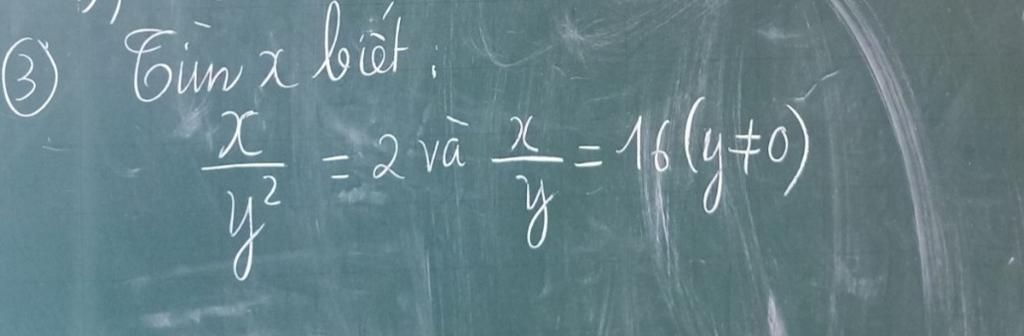 ③ Tìm x biết:
x/y² = 2 và x/y = 16 (y ≠ 0)